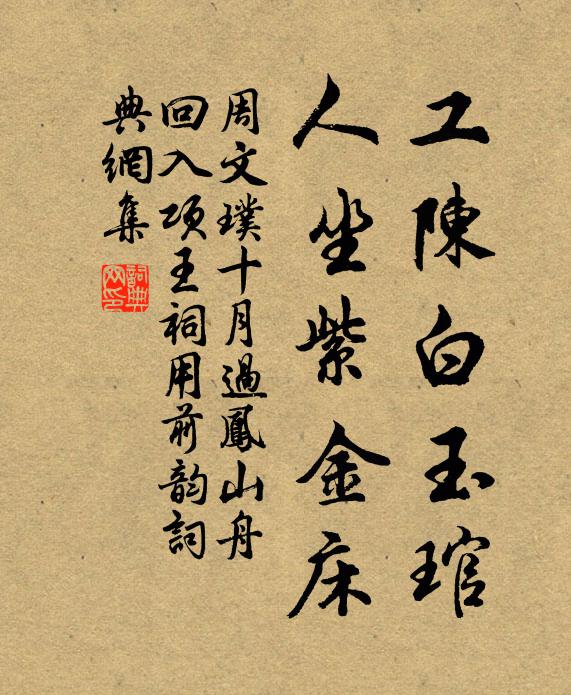 工陳白玉琯
人坐紫金床
周文璞十月過鳳山舟
回入項王祠用前韵詞
典網集
詞典网印